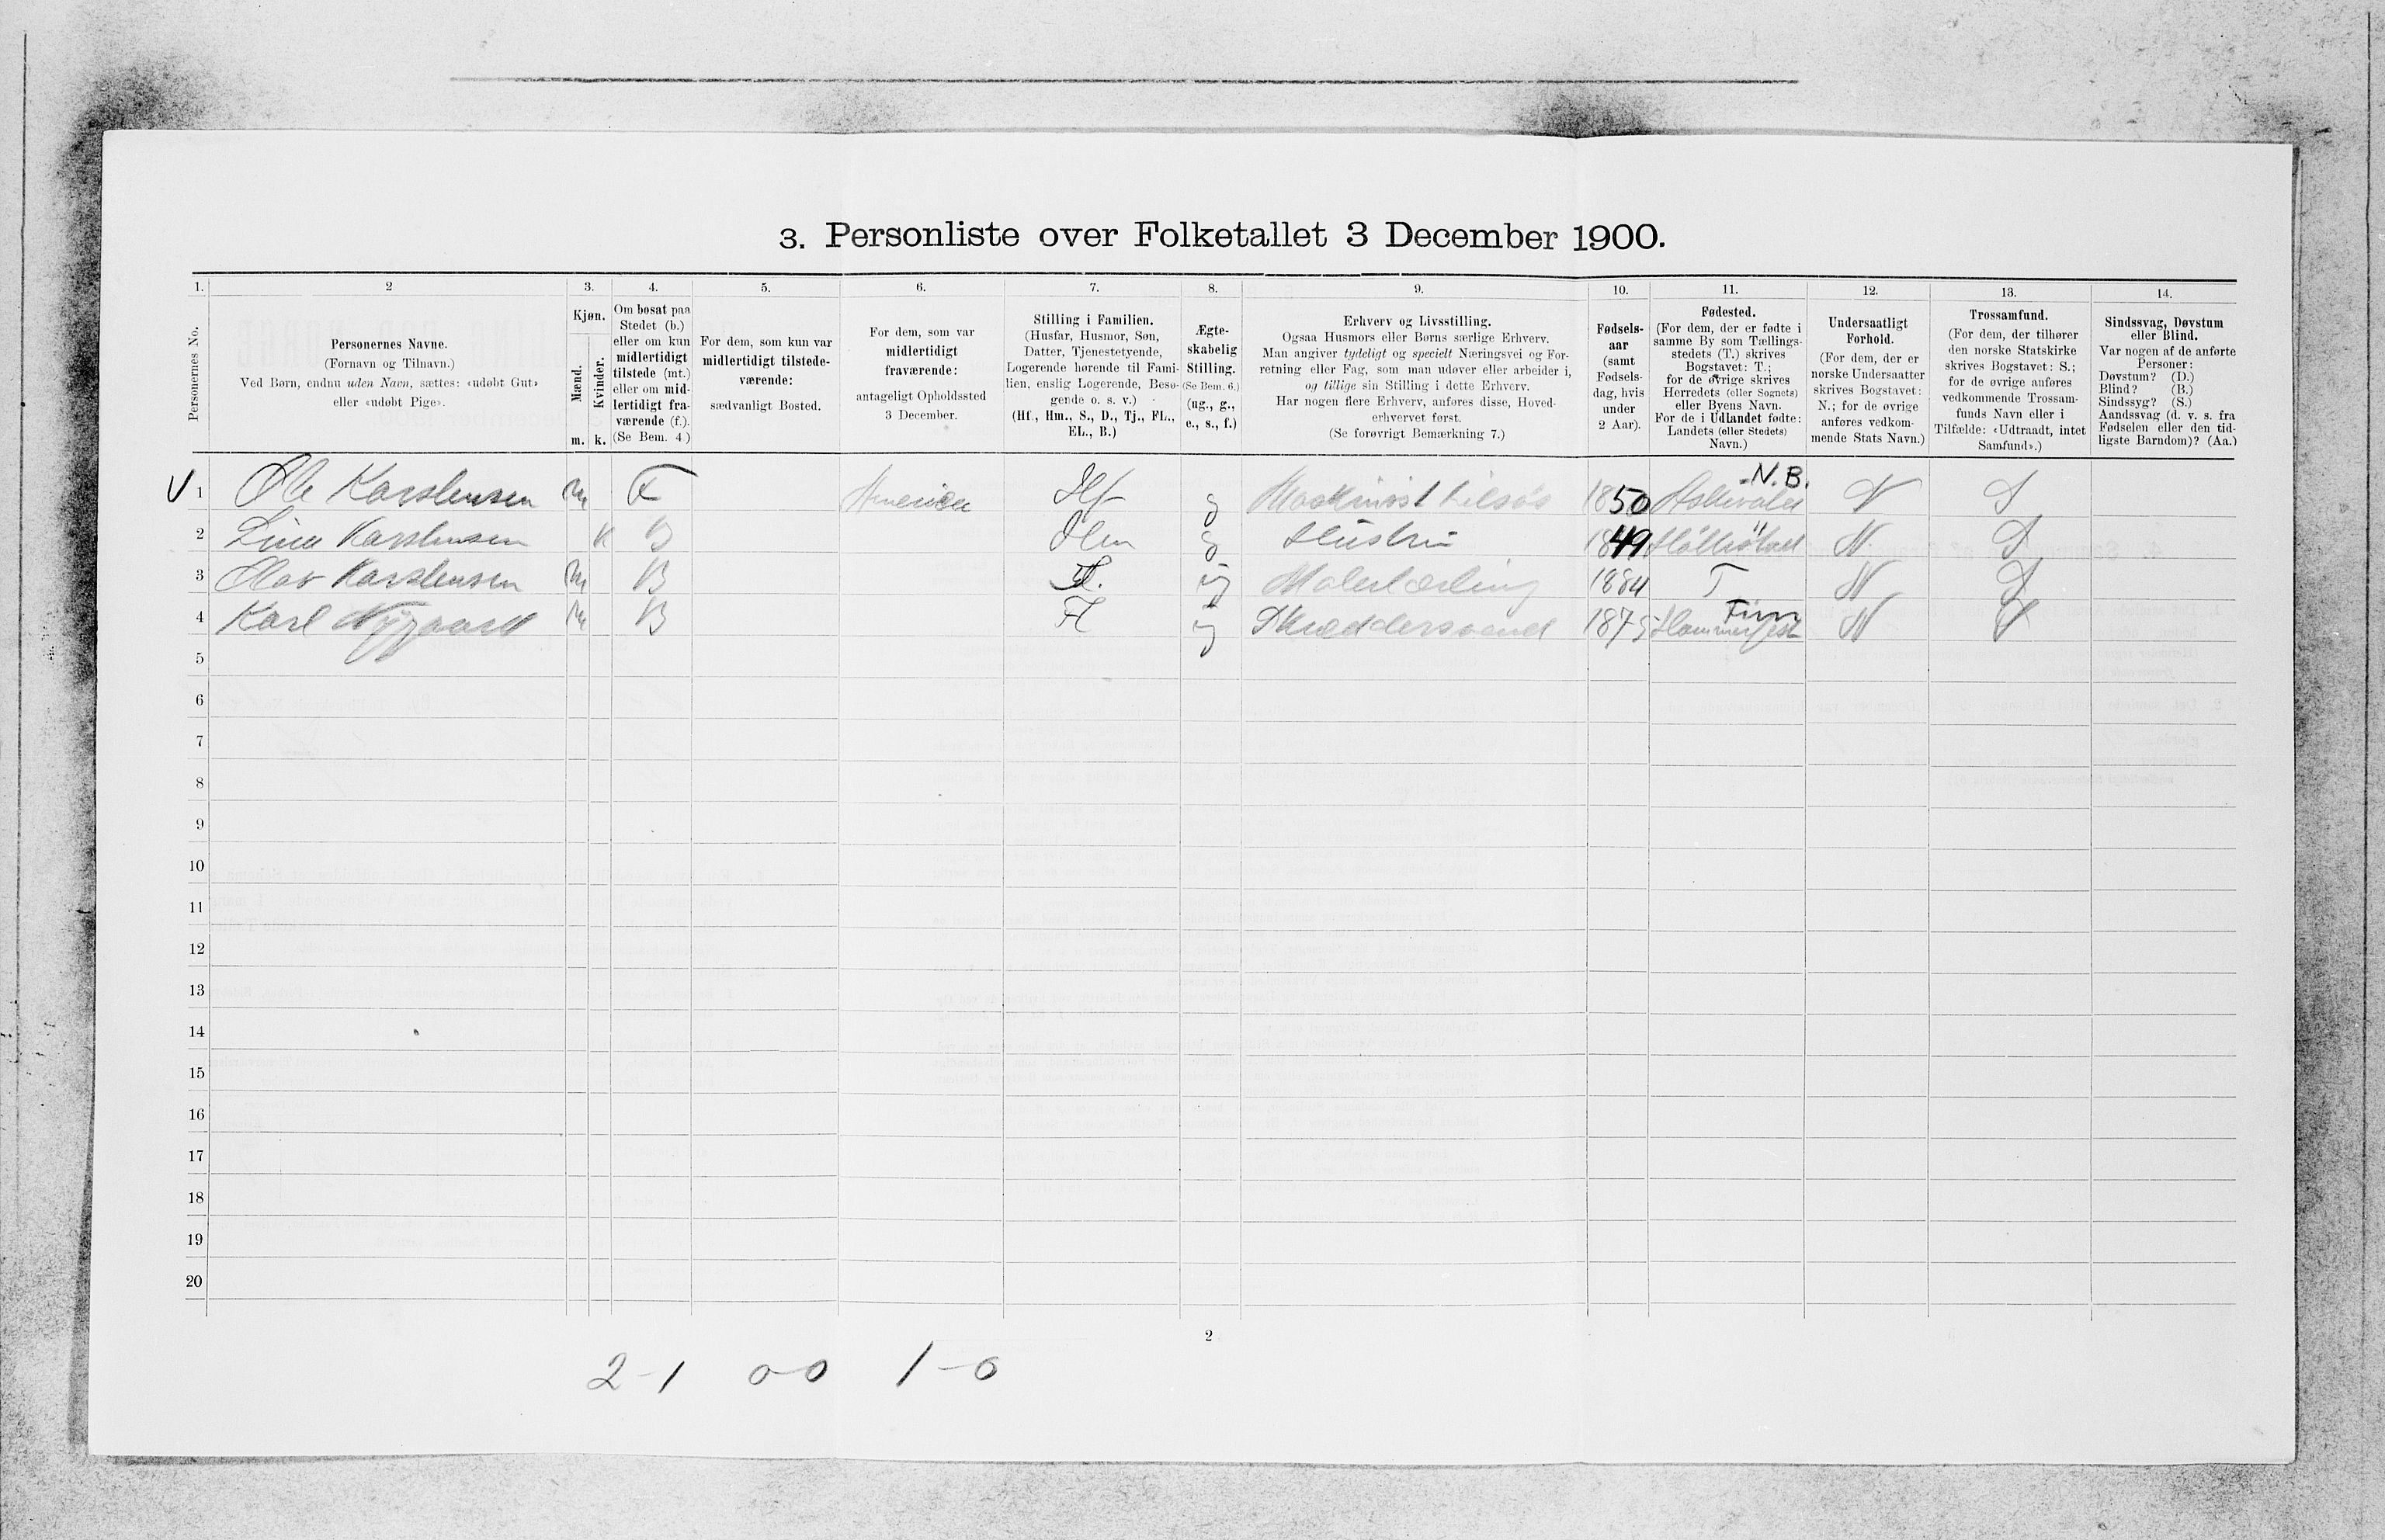 3. Personliste over Folketallet 3 December 1900.
1. 2 3. 4. 5. 6. 7. 8. 9. 10. 11. 12. 13. 14.
Personernes No.
Personernes Navne.
(Fornavn og Tilnavn.)
Ved Børn, endnu uden Navn, sættes: «udøbt Gut»
eller «udøbt Pige».
Kjøn.
Mænd.
m.
Kvinder.
k.
Om bosat paa
Stedet (b.)
eller om kun
midlertidigt
tilstede (mt.)
eller om mid-
lertidigt fra-
værende (f.).
(Se Bem. 4.)
For dem, som kun var
midlertidigt tilstede-
værende:
sædvanligt Bosted.
For dem, som var
midlertidigt
fraværende:
antageligt Opholdssted
3 December.
Stilling i Familien.
(Husfar, Husmor, Søn,
Datter, Tjenestetyende,
Logerende hørende til Fami-
lien, enslig Logerende, Besø-
gende o. s. v.)
(Hf., Hm., S., D., Tj., FL.,
EL., B.)
Ægte-
skabelig
Stilling.
(Se Bem. 6.)
(ug., g.,
e., s., f.)
Erhverv og Livsstilling.
Ogsaa Husmors eller Børns særlige Erhverv.
Man angiver tydeligt og specielt Næringsvei og For-
retning eller Fag, som man udøver eller arbeider i,
og tillige sin Stilling i dette Erhverv.
Har nogen flere Erhverv, anføres disse, Hoved-
erhvervet først.
(Se forøvrigt Bemærkning 7.)
Fødsels-
aar
(samt
Fødsels-
dag, hvis
under
2 Aar).
Fødested.
(For dem, der er fødte i
samme By som Tællings-
stedets (T.) skrives
Bogstavet: T.;
for de øvrige skrives
Herredets (eller Sognets)
eller Byens Navn.
For de i Udlandet fødte:
Landets (eller Stedets)
Navn.)
Undersaatligt
Forhold.
(For dem, der er
norske Undersaatter
skrives Bogstavet:
N.; for de øvrige
anføres vedkom-
mende Stats Navn.)
Trossamfund.
(For dem, der tilhører
den norske Statskirke
skrives Bogstavet: S.;
for de øvrige anføres
vedkommende Trossam-
funds Navn eller i
Tilfælde: «Udtraadt, intet
Samfund».)
Sindssvag, Døvstum
eller Blind.
Var nogen af de anførte
Personer:
Døvstum? (D.)
Blind? (B.)
Sindssyg? (S.)
Aandssvag (d. v. s. fra
Fødselen eller den tid-
ligste Barndom)? (Aa.)
V 1 Ole Karstensen M F America Hf g Maskinist tilsøs 1850 N.B. N S
2 Lina Karstensen K B Hm g Hustru 1849 N S
3 Olav Karstensen M B ug Malerlærling 1884 T N S
4 Karl Nygaard M B Fl ug Skræddersvend 1875 Hammerfest Finn N S
5
6
7
8
9
10
11
12
13
14
15
16
17
18
19
20
2
2-1 0-0 1-0